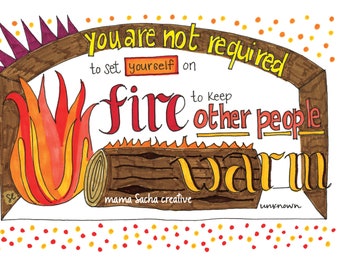 you are not required
to set yourself on
fire to keep
other people
warm
mama Sacha creative
unknown